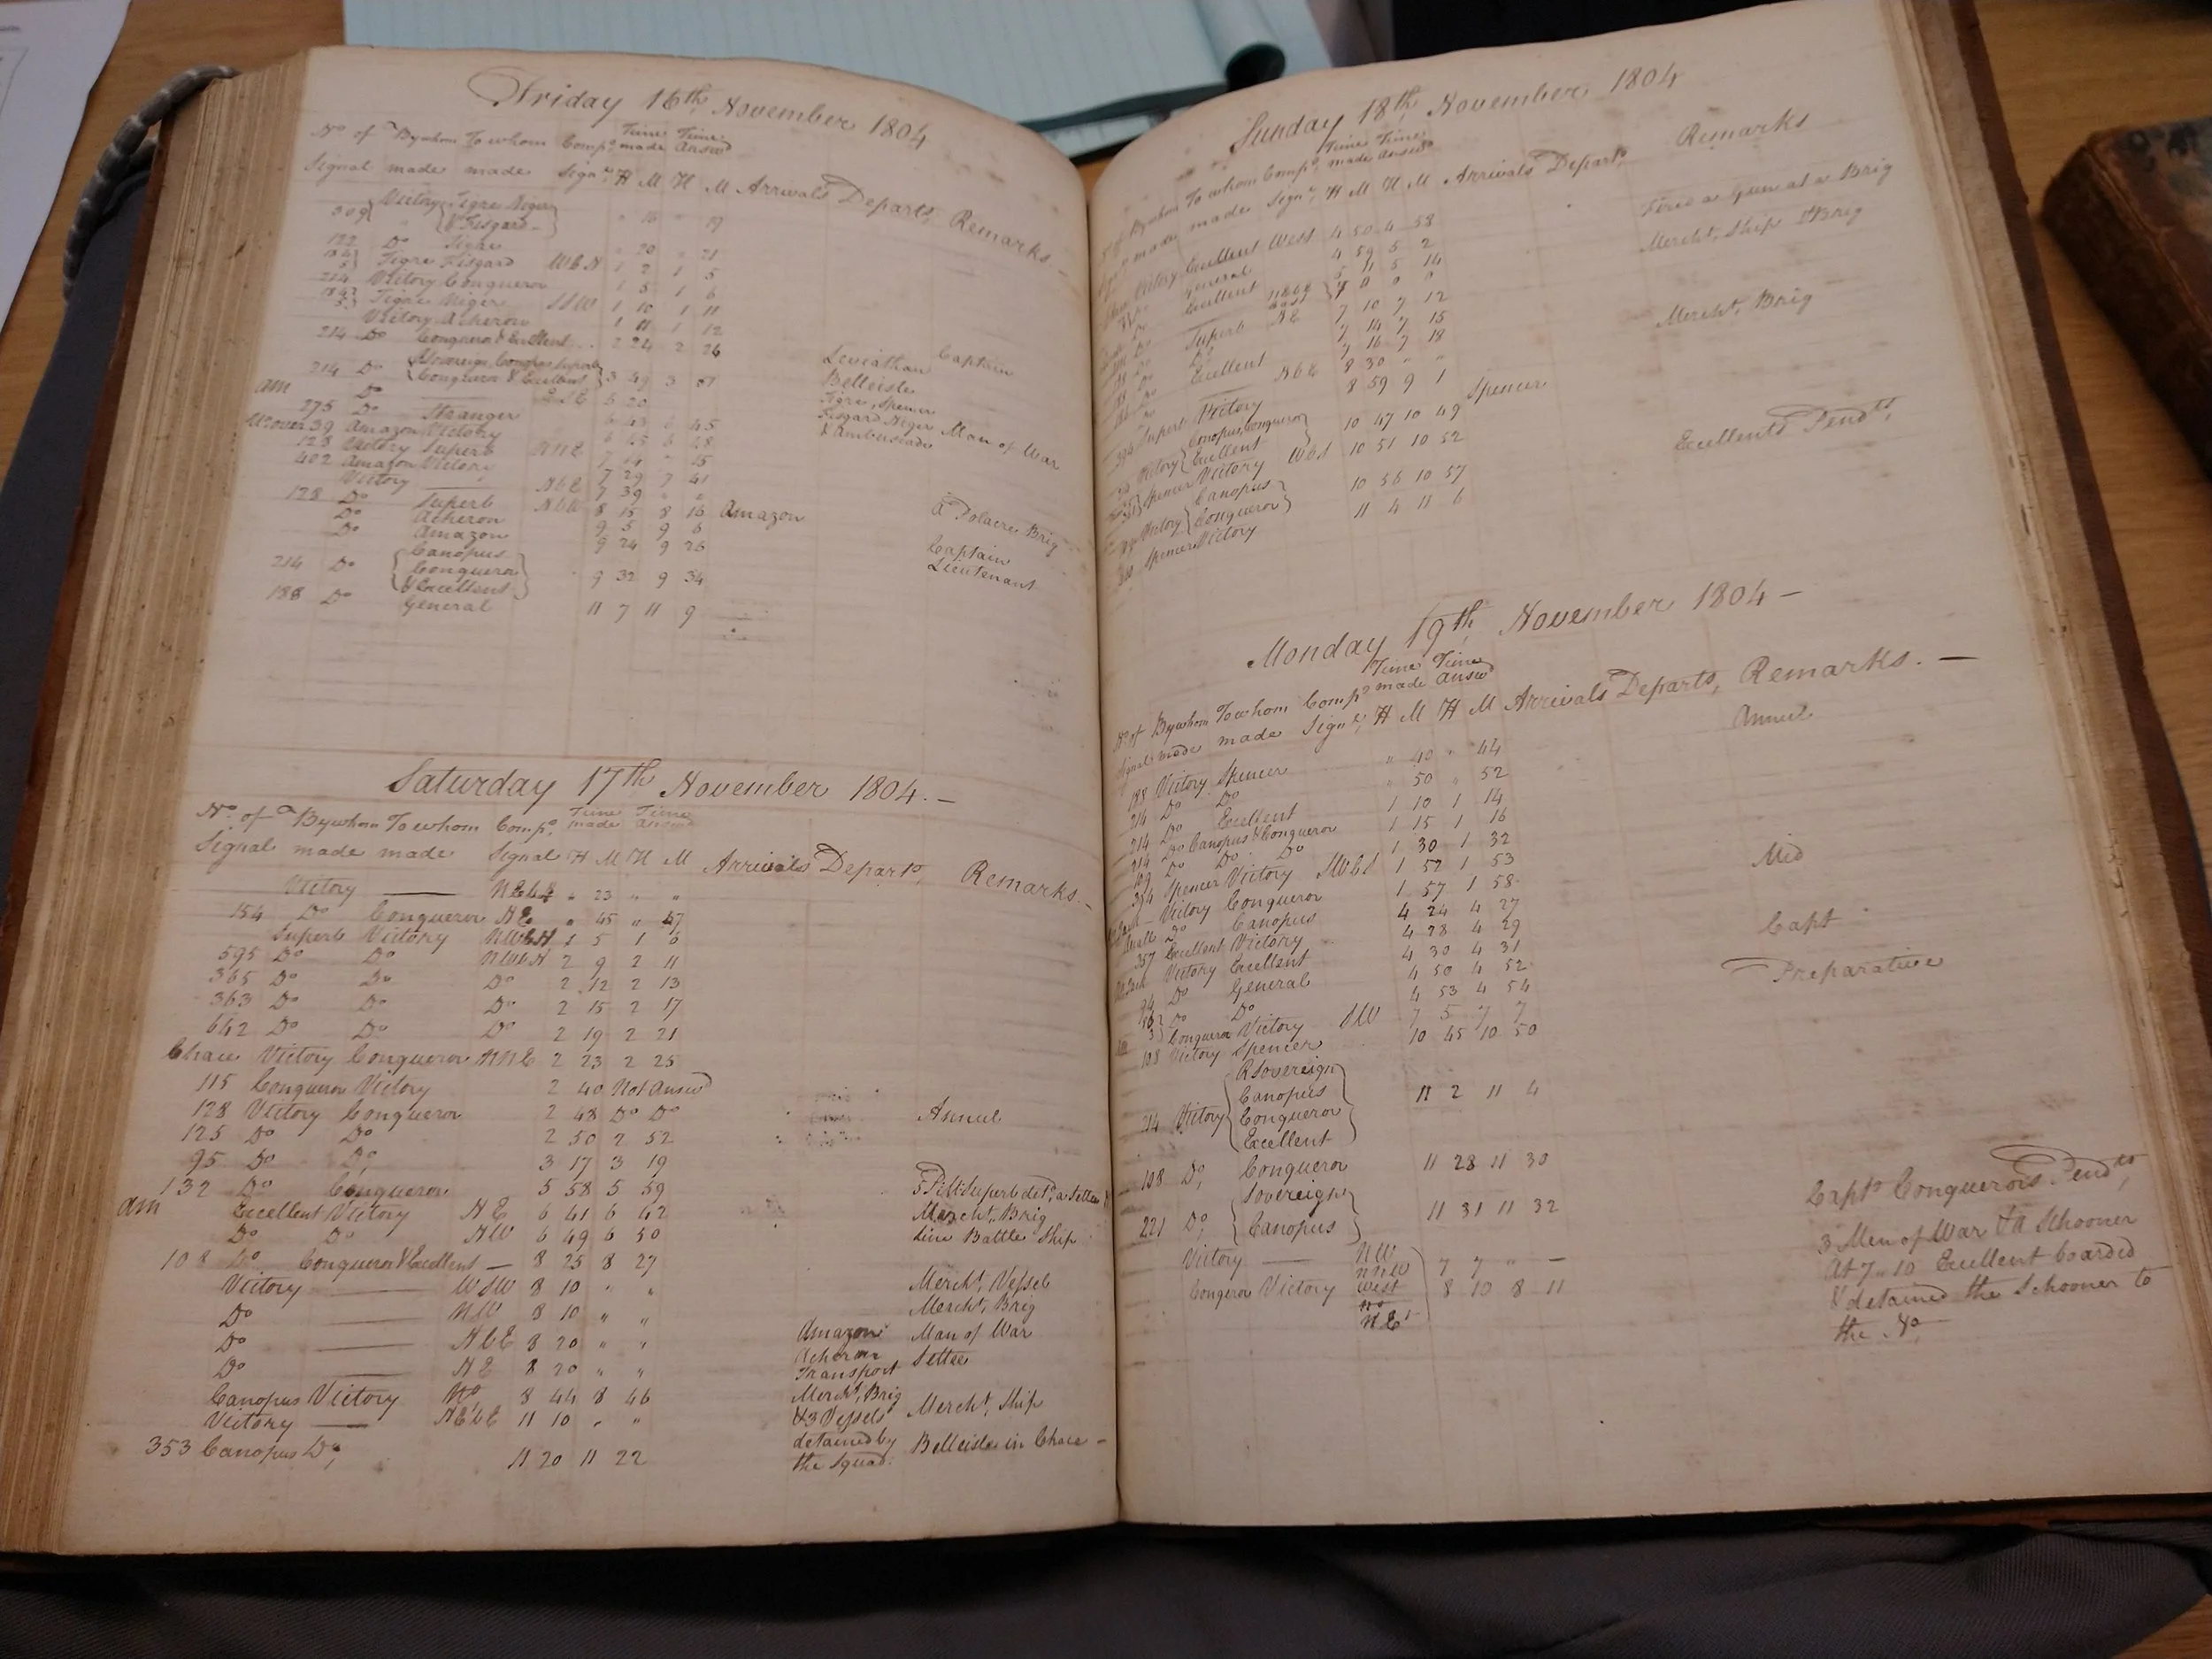 Friday 16th November 1804
No. of By whom To whom Comps. Time made Time Answd
Signal made made Signl. H M H M Arrivals Departs. Remarks.
309 Victory Tigre Niger & Fisgard " 16 " 19
122 Do Tigre " 20 " 21
Tigre Fisgard WbN 1 2 1 5
214 Victory Conqueror 1 5 1 6
Tigre Niger SSW 1 10 1 11
Victory Acheron 1 11 1 12
214 Do Conqueror & Excellent 2 24 2 26 Leviathan Captain
214 Do Rl Sovereign, Canopus Superb Conqueror & Excellent 3 49 3 51 Belleisle
am Do ESE 6 20 Tigre, Spencer
275 Do Stranger 6 43 6 45 Fisgard Niger Man of War
39 Amazon Victory 6 45 6 48 & Ambuscade
123 Victory Superb NNE 7 14 " 15
402 Amazon Victory 7 29 7 41
Victory NbE 7 39 " " a Polacre Brig
128 Do Superb NbW 8 15 8 16 Amazon
Do Acheron 9 5 9 6 Captain
Do Amazon 9 24 9 26 Lieutenant
214 Do Canopus Conqueror & Excellent 9 32 9 34
188 Do General 11 7 11 9
Saturday 17th November 1804.
No. of By whom To whom Comps. Time made Time Answd
Signal made made Signal H M H M Arrivals Departs. Remarks.
Victory NEbE " 23 " "
154 Do Conqueror NE " 45 " 47
Superb Victory NWbN 1 5 1 6
595 Do Do NWbN 2 9 2 11
365 Do Do Do 2 12 2 13
363 Do Do Do 2 15 2 17
642 Do Do Do 2 19 2 21
Chace Victory Conqueror NNE 2 23 2 25
115 Conqueror Victory 2 40 Not Answd
128 Victory Conqueror 2 48 Do Do Annul
125 Do Do 2 50 2 52
95 Do Do 3 17 3 19
132 Do Conqueror 5 58 5 59 Superb detd. a Settee
am Excellent Victory NE 6 41 6 42 Mercht. Brig
Do Do NW 6 49 6 50 Line Battle Ship
108 Do Conqueror & Excellent — 8 25 8 27
Victory WSW 8 10 " " Mercht. Vessel
Do NW 8 10 " " Mercht. Brig
Do NbE 8 20 " " Amazon Man of War
Do NE 8 20 " " Acheron Settee
Transport
Canopus Victory No. 8 44 8 46 Mercht. Brig
Victory NEbE 11 10 " " & 3 Vessels Mercht. Ship
353 Canopus Do, 11 20 11 22 detained by the Squad. Belleisle in Chace
Sunday 18th November 1804
By whom To whom Comps. Time made Time Answd
made made Signl. H M H M Arrivals Departs. Remarks
Victory Excellent West 4 50 4 58 Fired a Gun at a Brig
General 4 59 5 2 Mercht. Ship & Brig
Excellent 5 11 5 14
Superb NE 7 10 7 12
Do 7 14 7 15 Mercht. Brig
Do 7 16 7 18
Excellent NbE 8 30 " "
Superb Victory 8 59 9 1 Spencer
Victory Canopus, Conqueror Excellent 10 47 10 49 Excellents Pendts,
Spencer Victory WbS 10 51 10 52
Victory Canopus Conqueror 10 56 10 57
Spencer Victory 11 4 11 6
Monday 19th November 1804 —
No. of By whom To whom Comps. Time made Time Answd
Signal made made Signl. H M H M Arrivals Departs, Remarks. —
188 Victory Spencer " 40 " 44 Annul
214 Do Do " 50 " 52
214 Do Excellent 1 10 1 14
214 Do Canopus & Conqueror 1 15 1 16
109 Do Do Do 1 30 1 32
354 Spencer Victory SWbS 1 52 1 53 Mid
Victory Conqueror 1 57 1 58
Do Canopus 4 24 4 27
357 Excellent Victory 4 28 4 29 Capt
Victory Excellent 4 30 4 31
94 Do General 4 50 4 52 Preparative
Do Do 4 53 4 54
Conqueror Victory SW 7 5 7 7
108 Victory Spencer 10 45 10 50
214 Victory Rl Sovereign Canopus Conqueror Excellent 11 2 11 4
108 Do, Conqueror 11 28 11 30
221 Do, Sovereign Canopus 11 31 11 32 Capts. Conquerors Pendts,
Victory NW NNW 7 7 " — 3 Men of War & a Schooner
Conqueror Victory West No NE 8 10 8 11 At 7..10 Excellent boarded
& detained the Schooner to
the No.